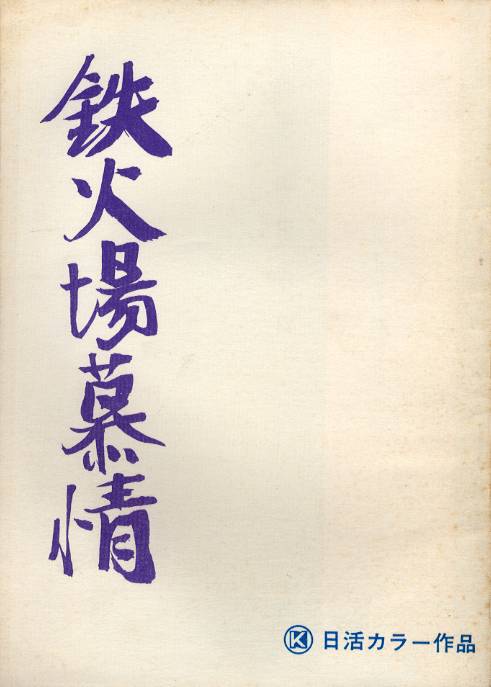 鉄火場慕情
日活カラー作品